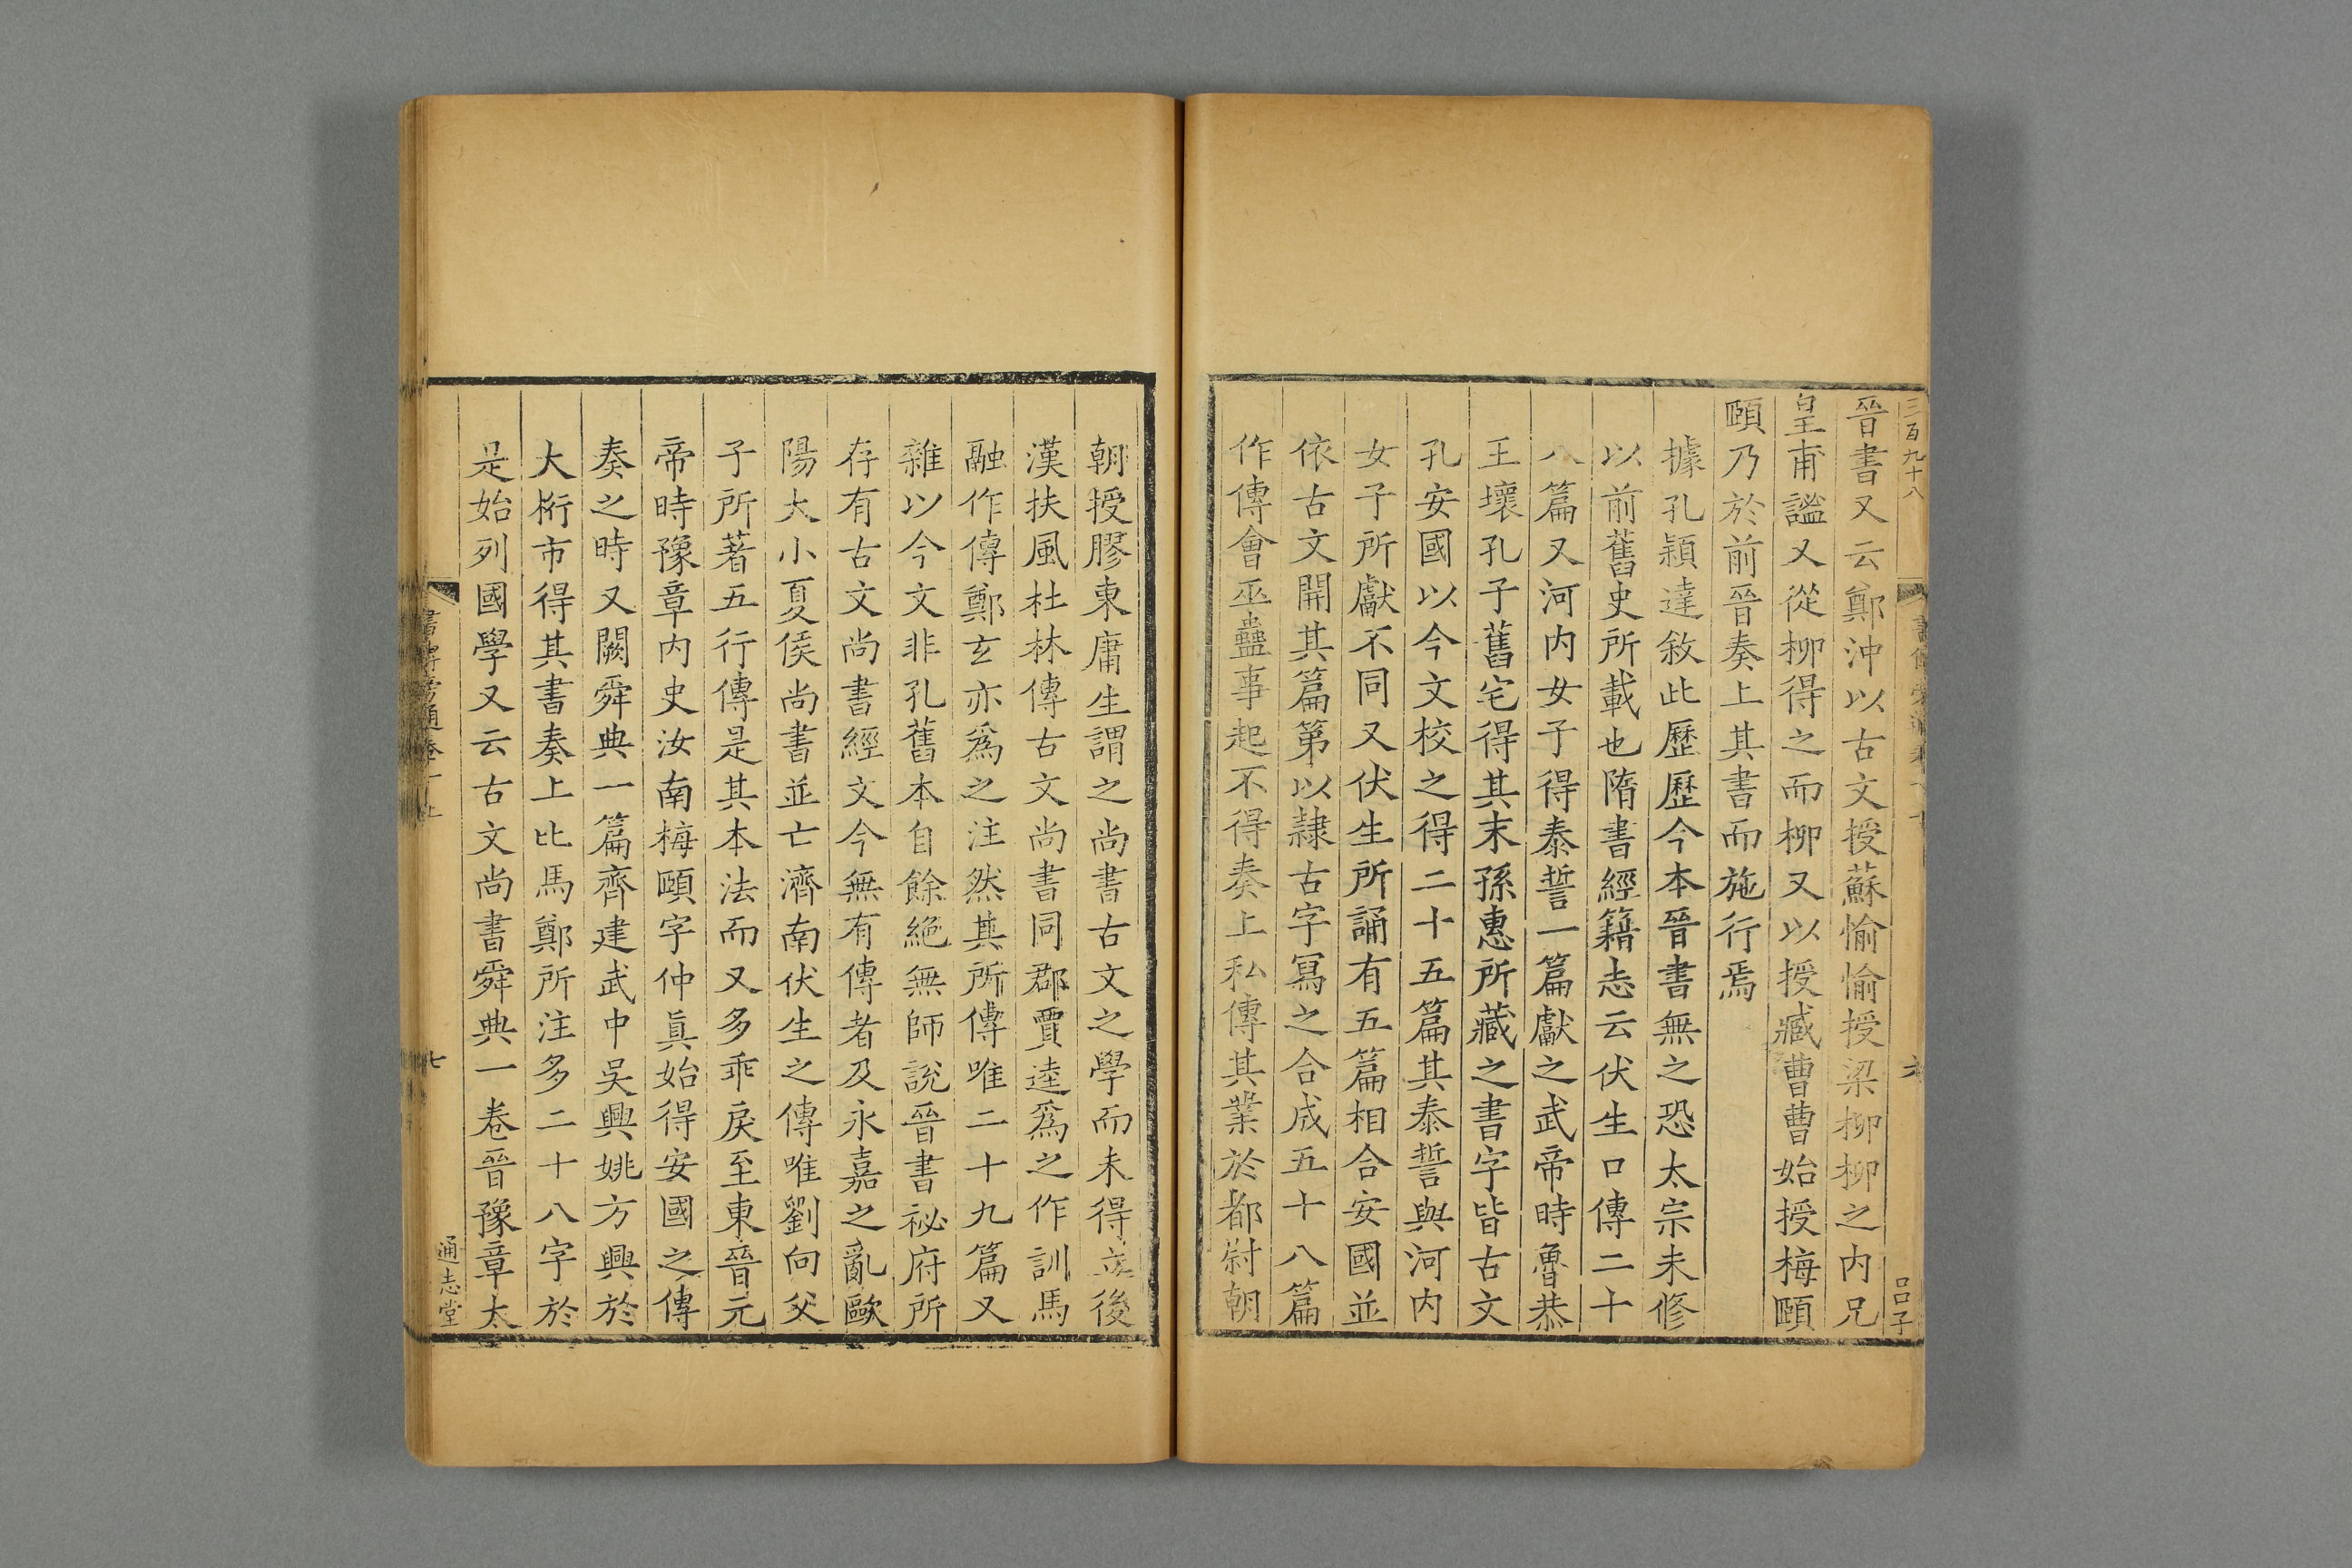 三百九十八
六
呂子
晉書又云鄭沖以古文授蘇愉愉授梁柳柳之内兄
皇甫謐又從柳得之而柳又以授臧曹曹始授梅頤
頤乃於前晉奏上其書而施行焉
據孔穎達敘此歷歷今本晉書無之恐太宗未修
以前舊史所載也隋書經籍志云伏生口傳二十
八篇又河内女子得泰誓一篇獻之武帝時魯恭
王壞孔子舊宅得其末孫惠所藏之書字皆古文
孔安國以今文校之得二十五篇其泰誓與河内
女子所獻不同又伏生所誦有五篇相合安國並
依古文開其篇第以隷古字冩之合成五十八篇
作傳會巫蠱事起不得奏上私傳其業於都尉朝
朝授膠東庸生謂之尚書古文之學而未得立後
漢扶風杜林傳古文尚書同郡賈逵爲之作訓馬
融作傳鄭玄亦爲之注然其所傳唯二十九篇又
雜以今文非孔舊本自餘絶無師說晉書祕府所
存有古文尚書經文今無有傳者及永嘉之亂歐
陽大小夏侯尚書並亡濟南伏生之傳唯劉向父
子所著五行傳是其本法而又多乖戾至東晉元
帝時豫章内史汝南梅頤字仲眞始得安國之傳
奏之時又闕舜典一篇齊建武中吴興姚方興於
大桁市得其書奏上比馬鄭所注多二十八字於
是始列國學又云古文尚書舜典一卷晉豫章太
七
通志堂